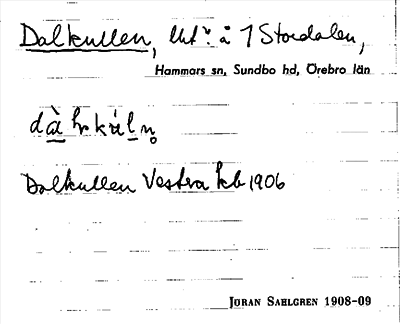 Dalkullen, å 1 Stordalen,
Hammars sn, Sundbo hd, Örebro län
Dalkullen Västra kb 1906
JÖRAN SAHLGREN 1908-09